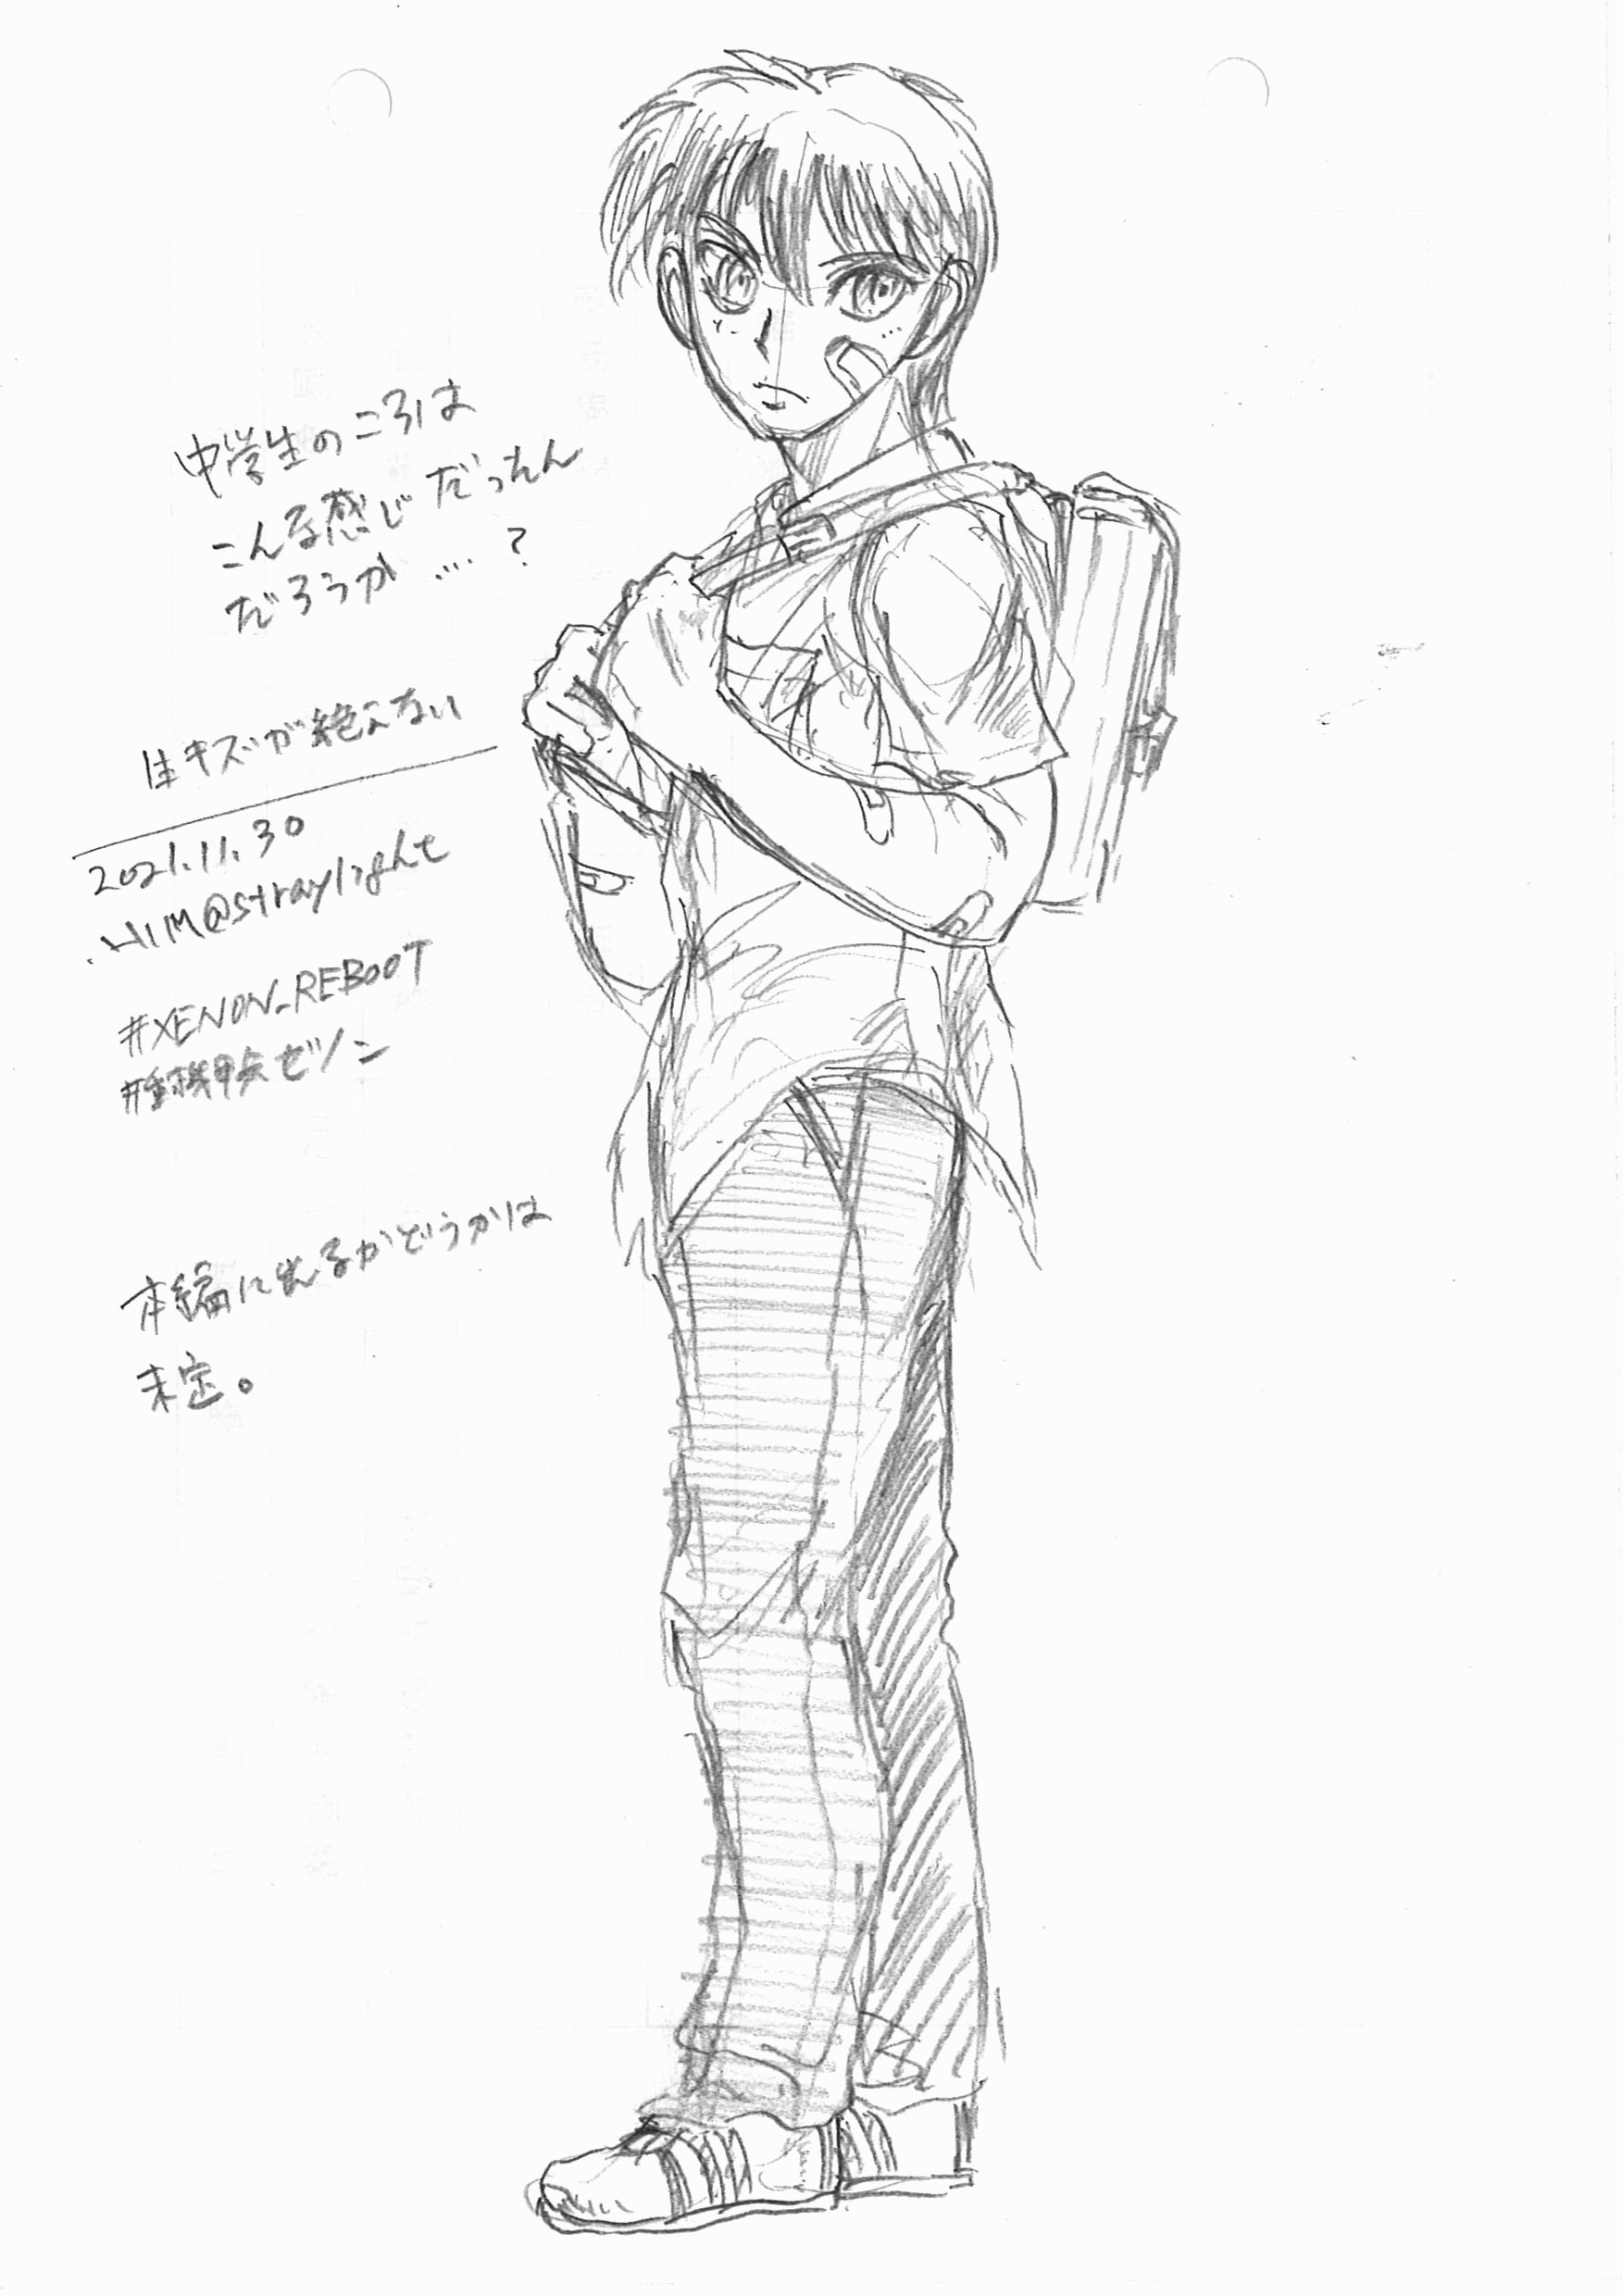 中学生のころは
こんな感じだったん
だろうか…?
生キズが絶えない
2021.11.30
HIM@straylight
#XENON_REBOOT
#重機甲兵ゼノン
本編に出るかどうかは
未定。